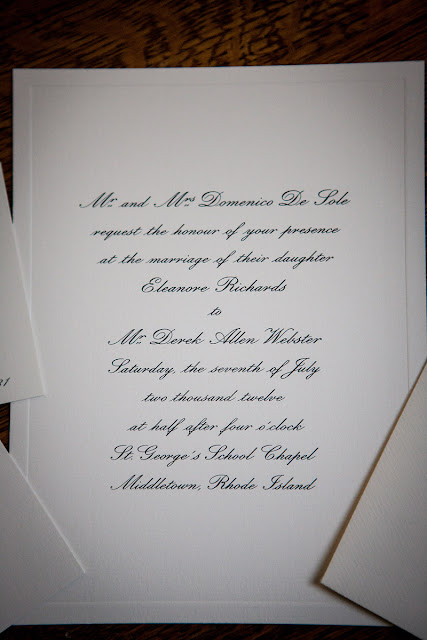 Mr and Mrs Domenico De Sole
request the honour of your presence
at the marriage of their daughter
Eleanore Richards
to
Mr Derek Allen Webster
Saturday, the seventh of July
two thousand twelve
at half after four o'clock
St. George's School Chapel
Middletown, Rhode Island